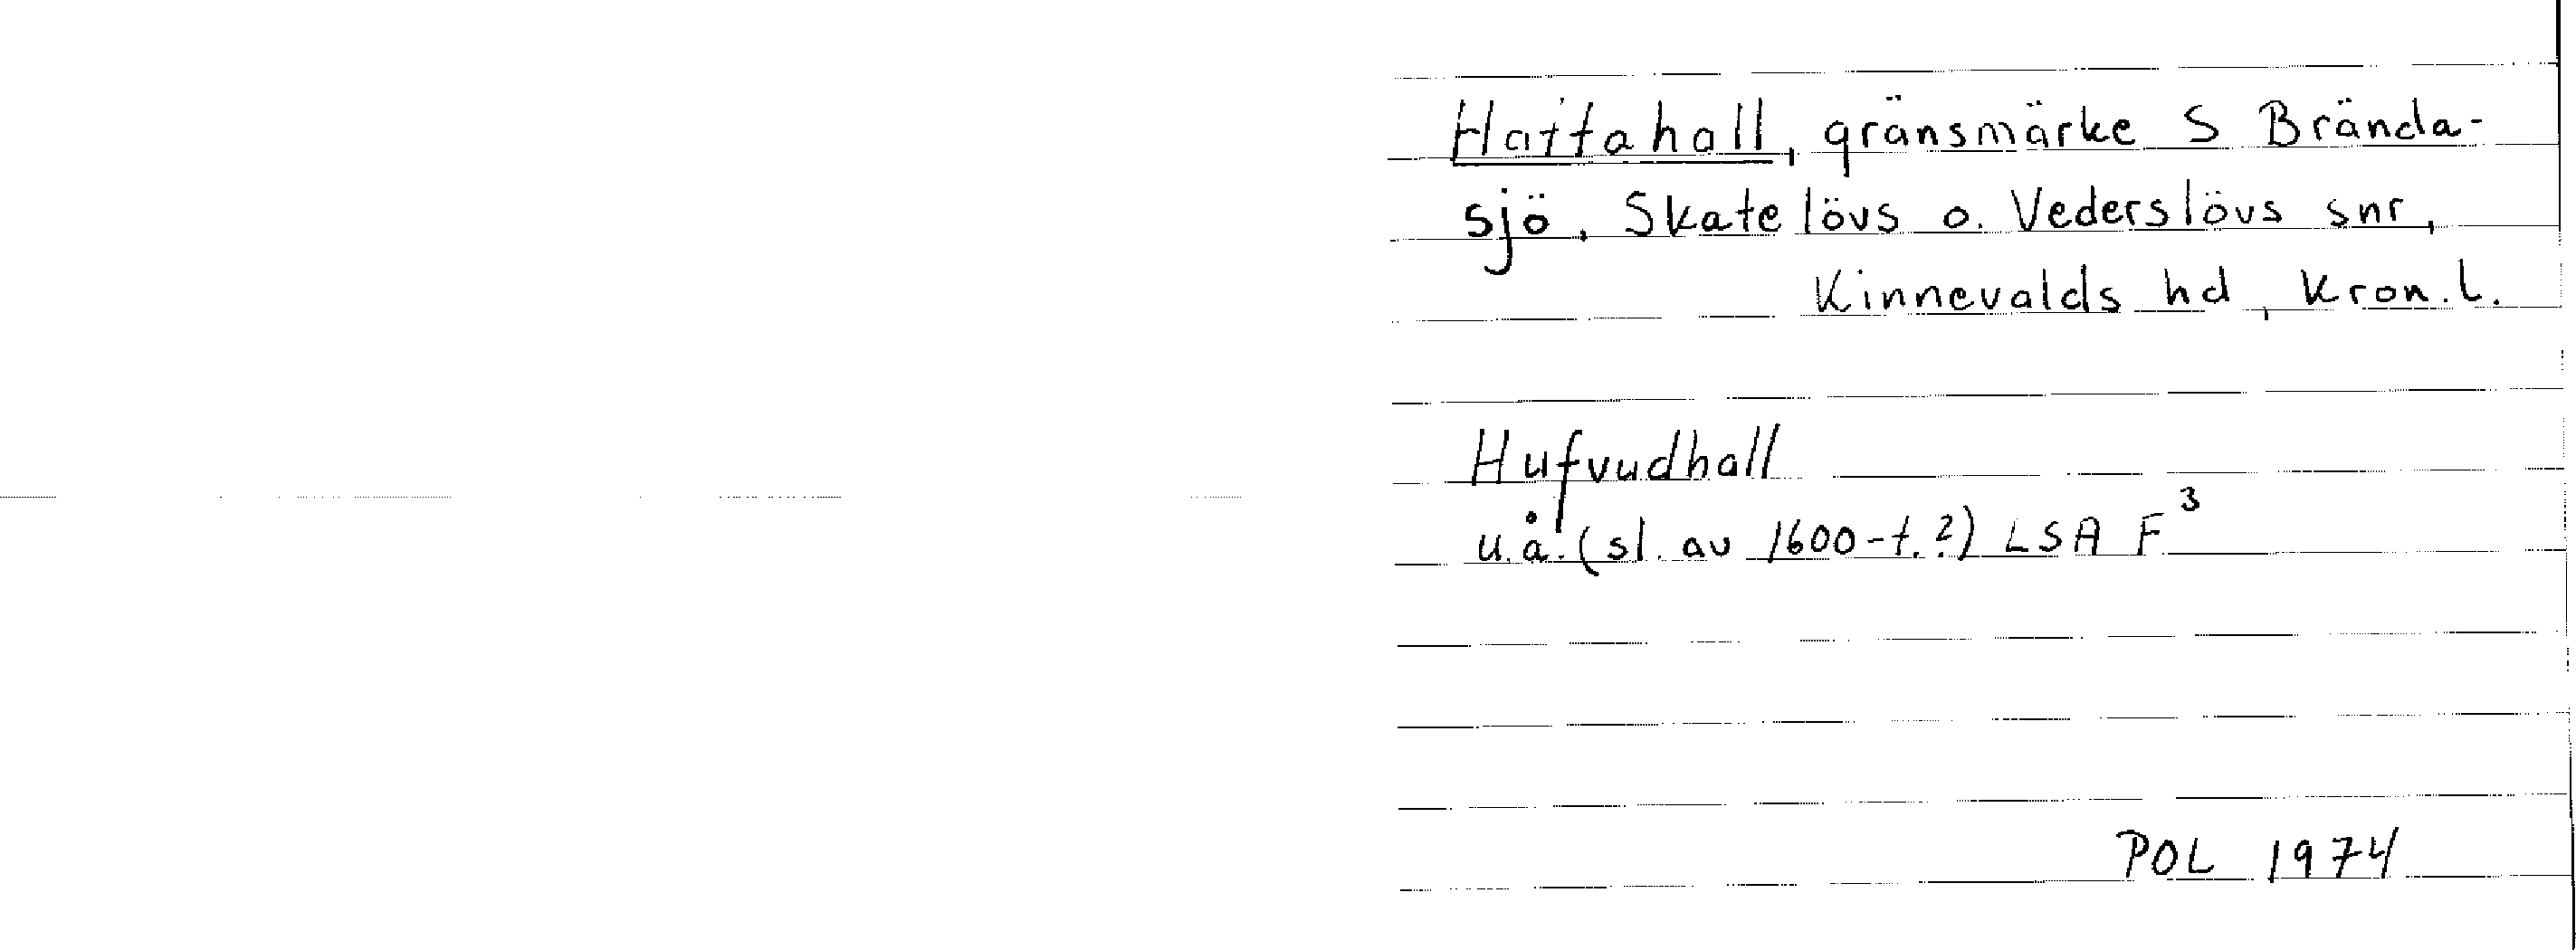 Hattahall, gränsmärke S Brända-
sjö, Skatelövs o. Vederslövs snr,
Kinnevalds hd, Kron. l.
Hufvudhall
u.å. (sl. av 1600-t.?) LSA F³
POL 1974